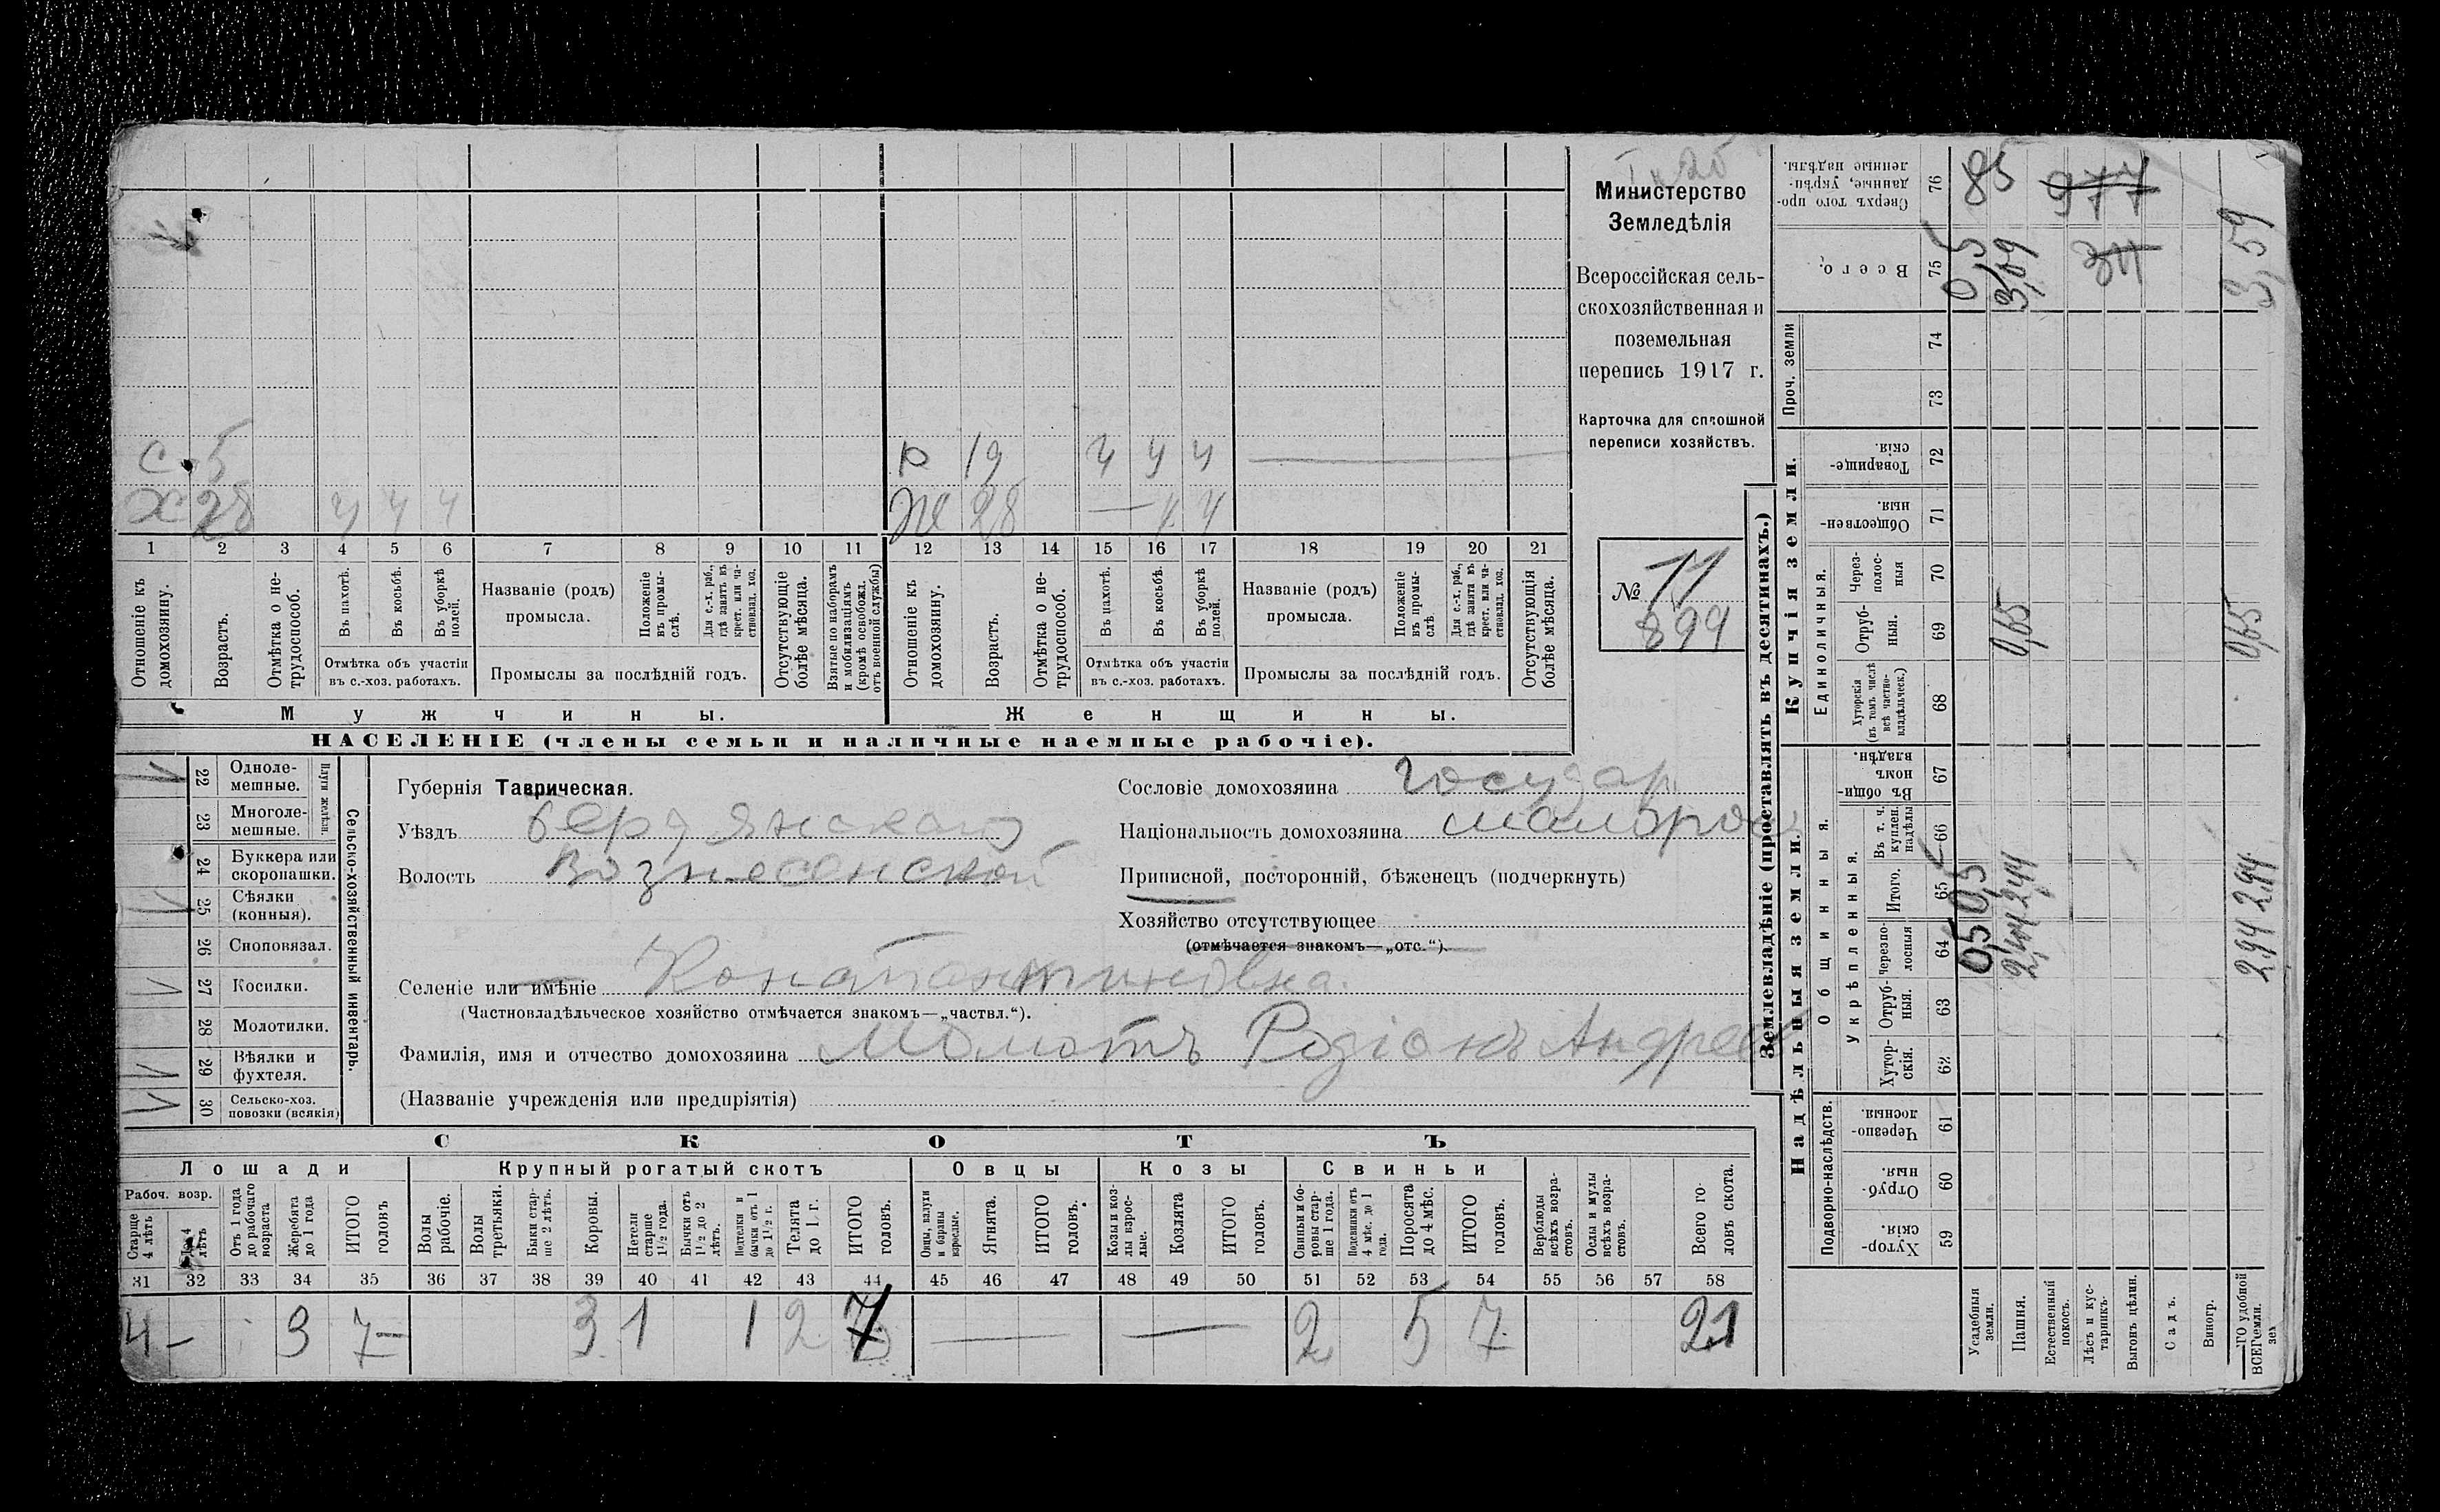 Министерство
Земледѣлія
Всероссійская сель-
скохозяйственная и
поземельная
перепись 1917 г.
Карточка для сплошной
переписи хозяйствъ.
№ 11
899
с 5
х 28 ч ч ч
р 19 ч ч ч —
ж 28 — ч ч
1 2 3 4 5 6 7 8 9 10 11 12 13 14 15 16 17 18 19 20 21
Отношеніе къ домохозяину.
Возрастъ.
Отмѣтка о не-трудоспособ.
Въ пахотѣ.
Въ косьбѣ.
Въ уборкѣ полей.
Отмѣтка объ участіи
въ с.-хоз. работахъ.
Названіе (родъ)
промысла.
Положеніе въ промы-слѣ.
Для с.-х. раб., гдѣ занятъ въ крест. или ча-стновлад. хоз.
Промыслы за послѣдній годъ.
Отсутствующіе болѣе мѣсяца.
Взятые по наборамъ и мобилизаціямъ (кромѣ освобожд. отъ военной службы)
Отношеніе къ домохозяину.
Возрастъ.
Отмѣтка о не-трудоспособ.
Въ пахотѣ.
Въ косьбѣ.
Въ уборкѣ полей.
Отмѣтка объ участіи
въ с.-хоз. работахъ.
Названіе (родъ)
промысла.
Положеніе въ промы-слѣ
Для с.-х. раб., гдѣ занята въ крест. или ча-стновлад. хоз.
Промыслы за послѣдній годъ.
Отсутствующія болѣе мѣсяца.
Мужчины.
Женщины.
НАСЕЛЕНІЕ (члены семьи и наличные наемные рабочіе).
Сельско-хозяйственный инвентарь.
Плуги желѣзн.
22 Одноле-мешные.
23 Многоле-мешные.
24 Буккера или скоропашки.
25 Сѣялки (конныя).
26 Сноповязал.
27 Косилки.
28 Молотилки.
29 Вѣялки и фухтеля.
30 Сельско-хоз. повозки (всякія)
Губернія Таврическая.
Уѣздъ Бердянскаго
Волость Вознесенской
Сословіе домохозяина государ
Національность домохозяина малорос
Приписной, посторонній, бѣженецъ (подчеркнуть)
Хозяйство отсутствующее
(отмѣчается знакомъ—„отс.“).
Селеніе или имѣніе Константиновка.
(Частновладѣльческое хозяйство отмѣчается знакомъ—„частвл.“).
Фамилія, имя и отчество домохозяина Момотъ Родіонъ Андреев
(Названіе учрежденія или предпріятія)
СКОТЪ
Лошади
Крупный рогатый скотъ
Овцы
Козы
Свиньи
Рабоч. возр.
Старше 4 лѣтъ
До 4 лѣтъ
Отъ 1 года до рабочаго возраста
Жеребята до 1 года
ИТОГО головъ
Волы рабочіе.
Волы третьяки.
Быки стар-ше 2 лѣтъ.
Коровы.
Нетели старше 1½ года.
Бычки отъ 1½ до 2 лѣтъ.
Нетелки и бычки отъ 1 до 1½ г.
Телята до 1 г.
ИТОГО головъ.
Овцы, валухи и бараны взрослые.
Ягнята.
ИТОГО головъ.
Козы и коз-лы взрос-лые.
Козлята
ИТОГО головъ.
Свиньи и бо-ровы стар-ше 1 года.
Подсвинки отъ 4 мѣс. до 1 года.
Поросята до 4 мѣс.
ИТОГО головъ.
Верблюды всѣхъ возра-стовъ.
Ослы и мулы всѣхъ возра-стовъ.
Всего го-ловъ скота.
31 32 33 34 35 36 37 38 39 40 41 42 43 44 45 46 47 48 49 50 51 52 53 54 55 56 57 58
4 — 3 7 3 1 1 2 7 — — 2 5 7 21
Землевладѣніе (проставлять въ десятинахъ.)
Надѣльныя земли.
Купчія земли.
Проч. земли
Подворно-наслѣдств.
Общинныя.
Укрѣпленныя.
Единоличныя.
Хутор-скія. 59
Отруб-ныя. 60
Черезпо-лосныя. 61
Хутор-скія. 62
Отруб-ныя. 63
Черезпо-лосныя 64
Итого. 65
Въ т. ч. куплен. надѣлы 66
Въ общин-номъ владѣн. 67
Хуторскія (въ томъ числѣ всѣ частно-владѣльческ.) 68
Отруб-ныя. 69
Через-полос-ныя 70
Обществен-ныя. 71
Товарище-скія. 72
73
74
Всего. 75
Сверхъ того про-данные, укрѣп-ленные надѣлы. 76
Усадебныя земли. 0,5 0,5 0,5 85
Пашня. 2,44 2,44 0,65 3,09
Естественный покосъ.
Лѣсъ и кус-тарникъ.
Выгонъ цѣлин.
Садъ.
Виногр.
ВСЕГО удобной земли. 2,94 2,94 0,65 3,59
977